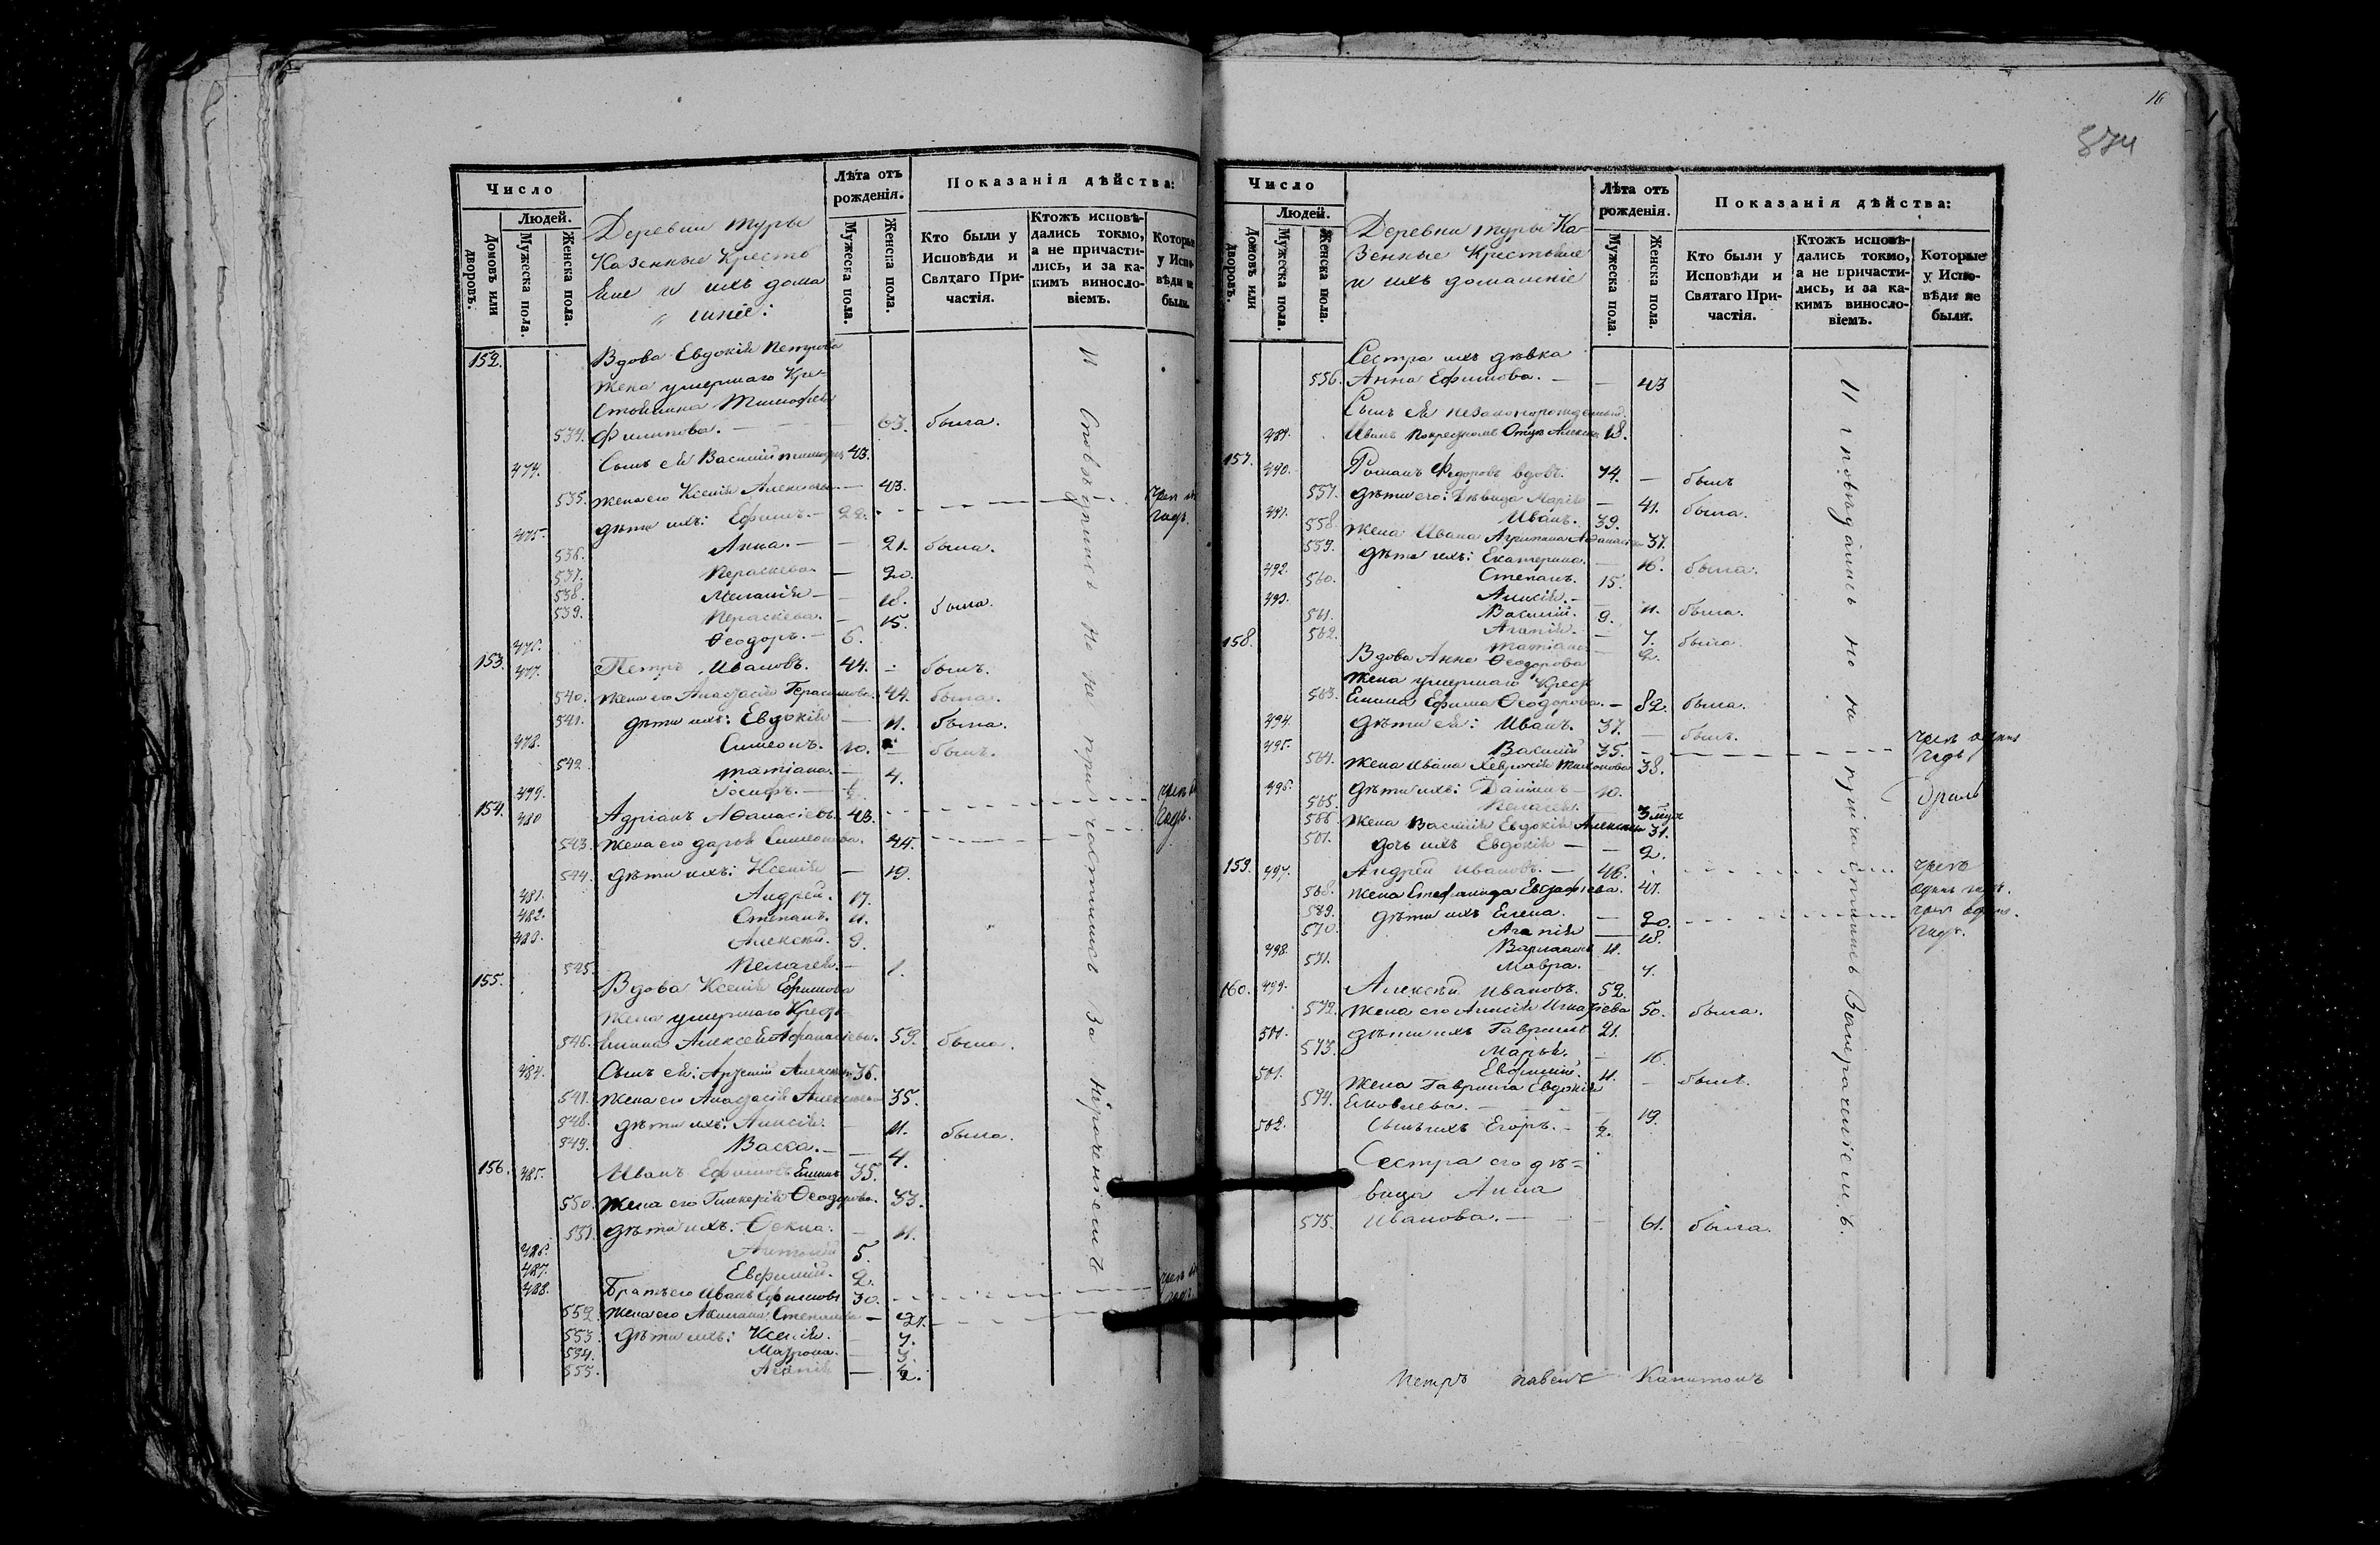 Число
Людей.
Домовъ или дворовъ.
Мужеска пола.
Женска пола.
Деревни Туры
Казенные Кресть
яне и ихъ дома
шніе:
Лѣта отъ рожденія.
Мужеска пола.
Женска пола.
Показанія дѣйства:
Кто были у Исповѣди и Святаго Причастія.
Ктожъ исповѣдались токмо, а не причастились, и за какимъ винословіемъ.
Которые у Испо вѣди не были.
152.
Вдова Евдокія Петрова
Жена умершаго Кре-
стьянина Тимофея
534. Филипова. — 63. была.
474. Сынъ ея Василій 43.
535. Жена его Ксенія — 43.
475. Дѣти ихъ: Ефимъ. — 22.
годъ.
536. Анна. — 21. была.
537. Параскева. — 20.
538. Меланія — 18. была.
539. Параскева. — 15.
476. Ѳеодоръ. — 6.
153. 477. Петръ Ивановъ. 44. былъ.
540. Жена его Анастасія Герасимова. 44. была.
541. Дѣти ихъ: Евдокія — 11. была.
478. Симеонъ. 10. — былъ.
542. Татіана. — 4.
479. Іосифъ. — ½.
154. 480 Адріанъ Аѳанасіевъ. 43.
годъ.
543. Жена его Дарья Симеонова. 44.
544. Дѣти ихъ: Ксенія — 19.
481. Андрей. 17.
482. Степанъ. 11.
483. Алексѣй. 9.
545. Пелагея. — 1.
155. Вдова Ксенія Ефимова
Жена умершаго Крестъ
546. янина Алексея Афанасіева. 59. была.
484. Сынъ ея: 36.
547. Жена его Анастасія 35.
548. Дѣти ихъ: Анисія. 11. была.
549. Васса. — 4.
156. 485. Иванъ Ефимовъ 35.
550. Жена его Гликерія Ѳеодорова. 33.
551. Дѣти ихъ: Ѳекла. 11.
486. Антоній 5.
487. Евфимій. 2.
488. Братъ его Иванъ Ефимовъ 30.
552. Жена его — 27.
553. Дѣти ихъ: Ксенія. 7.
554. Матрона. 3.
555. Агапія — ½.
Исповѣдились но не причастились За нераченіемъ
16
874
Число
Людей.
Домовъ или дворовъ.
Мужеска пола.
Женска пола.
Деревни Туры Ка-
зенные Крестьяне
и ихъ домашніе
Лѣта отъ рожденія.
Мужеска пола.
Женска пола.
Показанія дѣйства:
Кто были у Исповѣди и Святаго Причастія.
Ктожъ исповѣдались токмо, а не причастились, и за какимъ винословіемъ.
Которые у Исповѣди не были.
Сестра ихъ дѣвка
556. Анна Ефимова. — — 43
Сынъ ея незаконорожденный
489. Иванъ 18.
157. 490. Романъ Федоровъ вдовъ. 74. — былъ
557. Дѣти его: Дѣвица Марія — 41. была.
491. Иванъ. 39.
558. Жена Ивана Агрипина 37.
559. Дѣти ихъ: Екатерина. — 16. была.
492. Степанъ. 15.
560. Анисія. — 11. была.
493. Василій. 9.
561. Агапія. — 7. была.
562. Татіана — 2.
158. Вдова Анна Ѳеодорова
Жена умершаго Кресть
563. янина Ефима Ѳеодорова. — 82. была.
494. Дѣти ея: Иванъ. 37. — былъ.
495. Василій 35.
годъ
564. Жена Ивана 38.
496. Дѣти ихъ: Даніилъ — 10.
565. Пелагея. 3
566 Жена Василія Евдокія 31.
567. Дочь ихъ Евдокія — — 2.
159. 497. Андрей Ивановъ. — 46.
568. Жена Стефанида 47.
одинъ годъ.
569. Дѣти ихъ Елена. — 20.
570. Агапія 18.
годъ.
498. Варлаамъ 11.
571. Мавра. — 7.
160. 499. Алексѣй Ивановъ. 52.
572. Жена его Анисія Игнатіева 50. была.
500. Дѣти ихъ Гавріилъ 21.
573. Марья. — 16.
501. Евфимій. 11. — былъ.
Жена Гавріила Евдокія
574. Яковлева. — 19.
502. Сынъ ихъ Егоръ. — ½.
Сестра его дѣ=
вица Анна
575. Иванова. — 61. была.
Исповѣдались но не причастились За нераченіемъ.
Петръ Павелъ Капитонъ